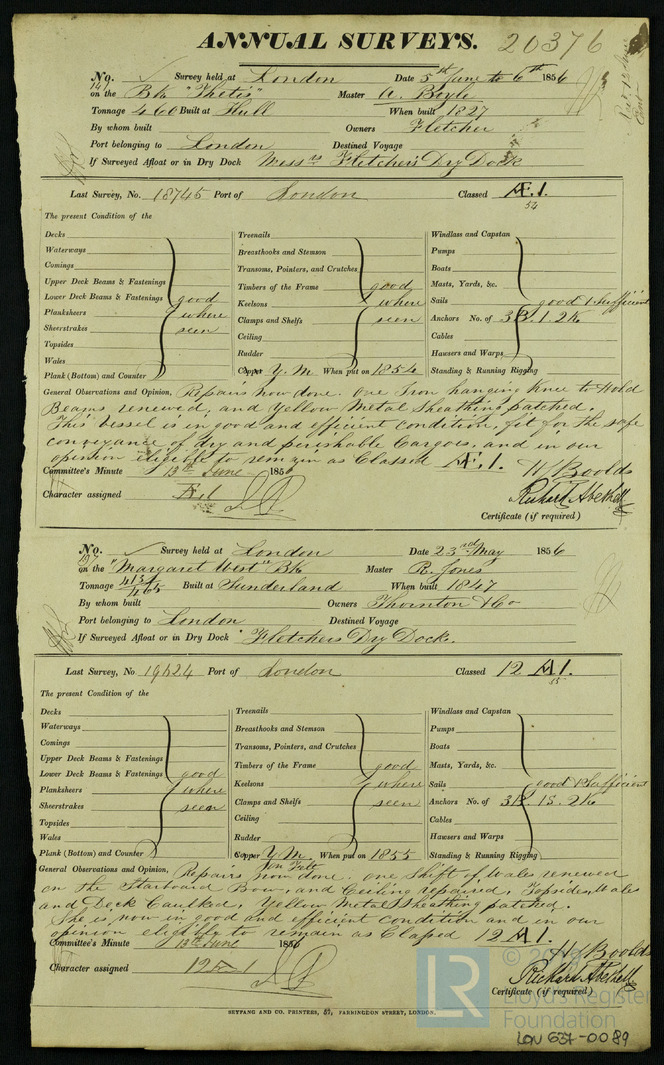 ANNUAL SURVEYS. 20376
No. Survey held at London Date 5th June to 6th 1856
on the Bk "Thetis" Master A. Boyle
Tonnage 460 Built at Hull When built 1827
By whom built Owners Fletcher
Port belonging to London Destined Voyage
If Surveyed Afloat or in Dry Dock Messrs Fletcher's Dry Dock
Last Survey, No. 18745 Port of London Classed Æ.1.
54
The present Condition of the
Decks
Waterways
Comings
Upper Deck Beams & Fastenings
Lower Deck Beams & Fastenings good
Planksheers where
Sheerstrakes seen
Topsides
Wales
Plank (Bottom) and Counter
Treenails
Breasthooks and Stemson
Transoms, Pointers, and Crutches
Timbers of the Frame good
Keelsons where
Clamps and Shelfs seen
Ceiling
Rudder
Copper Y.M. When put on 1854
Windlass and Capstan
Pumps
Boats
Masts, Yards, &c.
Sails good & Sufficient
Anchors No. of 3B. 1S. 2K
Cables
Hawsers and Warps
Standing & Running Rigging
General Observations and Opinion, Repairs now done. One Iron hanging Knee to Hold
Beams renewed, and Yellow Metal Sheathing patched.
This Vessel is in good and efficient condition, fit for the safe
conveyance of dry and perishable Cargoes, and in our
opinion eligible to remain as Classed Æ.1. W Boolds
Committee's Minute 13th June 1856
Character assigned Æ1 Richard Abethell
Certificate (if required)
No. Survey held at London Date 23rd May 1856
on the "Margaret West" Bk Master R. Jones
Tonnage 413/465 Built at Sunderland When built 1847
By whom built Owners Thornton & Co
Port belonging to London Destined Voyage
If Surveyed Afloat or in Dry Dock Fletchers Dry Dock.
Last Survey, No 19624 Port of London Classed 12 A1.
55
The present Condition of the
Decks
Waterways
Comings
Upper Deck Beams & Fastenings
Lower Deck Beams & Fastenings good
Planksheers where
Sheerstrakes seen
Topsides
Wales
Plank (Bottom) and Counter
Treenails
Breasthooks and Stemson
Transoms, Pointers, and Crutches
Timbers of the Frame good
Keelsons where
Clamps and Shelfs seen
Ceiling
Rudder
Copper Y.M. on Felt When put on 1855
Windlass and Capstan
Pumps
Boats
Masts, Yards, &c.
Sails good & Sufficient
Anchors No. of 3B. 1S. 2K
Cables
Hawsers and Warps
Standing & Running Rigging
General Observations and Opinion, Repairs now done. One Shift of Wales renewed
on the Starboard Bow, and Ceiling repaired, Topsides, Wales
and Deck Caulked, Yellow Metal Sheathing patched.
She is now in good and efficient condition and in our
opinion eligible to remain as Classed 12 A1.
Committee's Minute 13th June 1856 W Boolds
Character assigned 12 A1 Richard Abethell
Certificate (if required)
SEYFANG AND CO. PRINTERS, 57, FARRINGDON STREET, LONDON.
LR
Lloyd's Register
Foundation
LON 637-0089